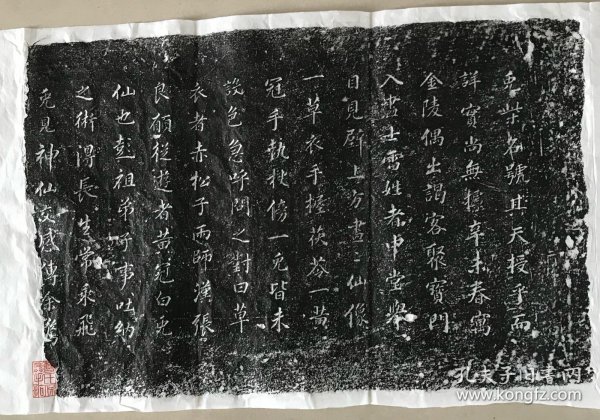 兎柴名號其天授乎而
詳實尚無據辛未春寓
金陵偶出謁客聚寳門
入畫士雪姓者中堂舉
目見廚上方畫二仙像
一草衣手擡茯苓一黄
冠手執杖傍一兎皆未
設色急呼問之對曰草
衣者赤松子雨師漢張
良願從遊者黄冠白兎
仙也彭祖弟所事吐納
之術得長生常乘飛
兎見神仙文感傳余
孔夫子旧书网
www.kongfz.com